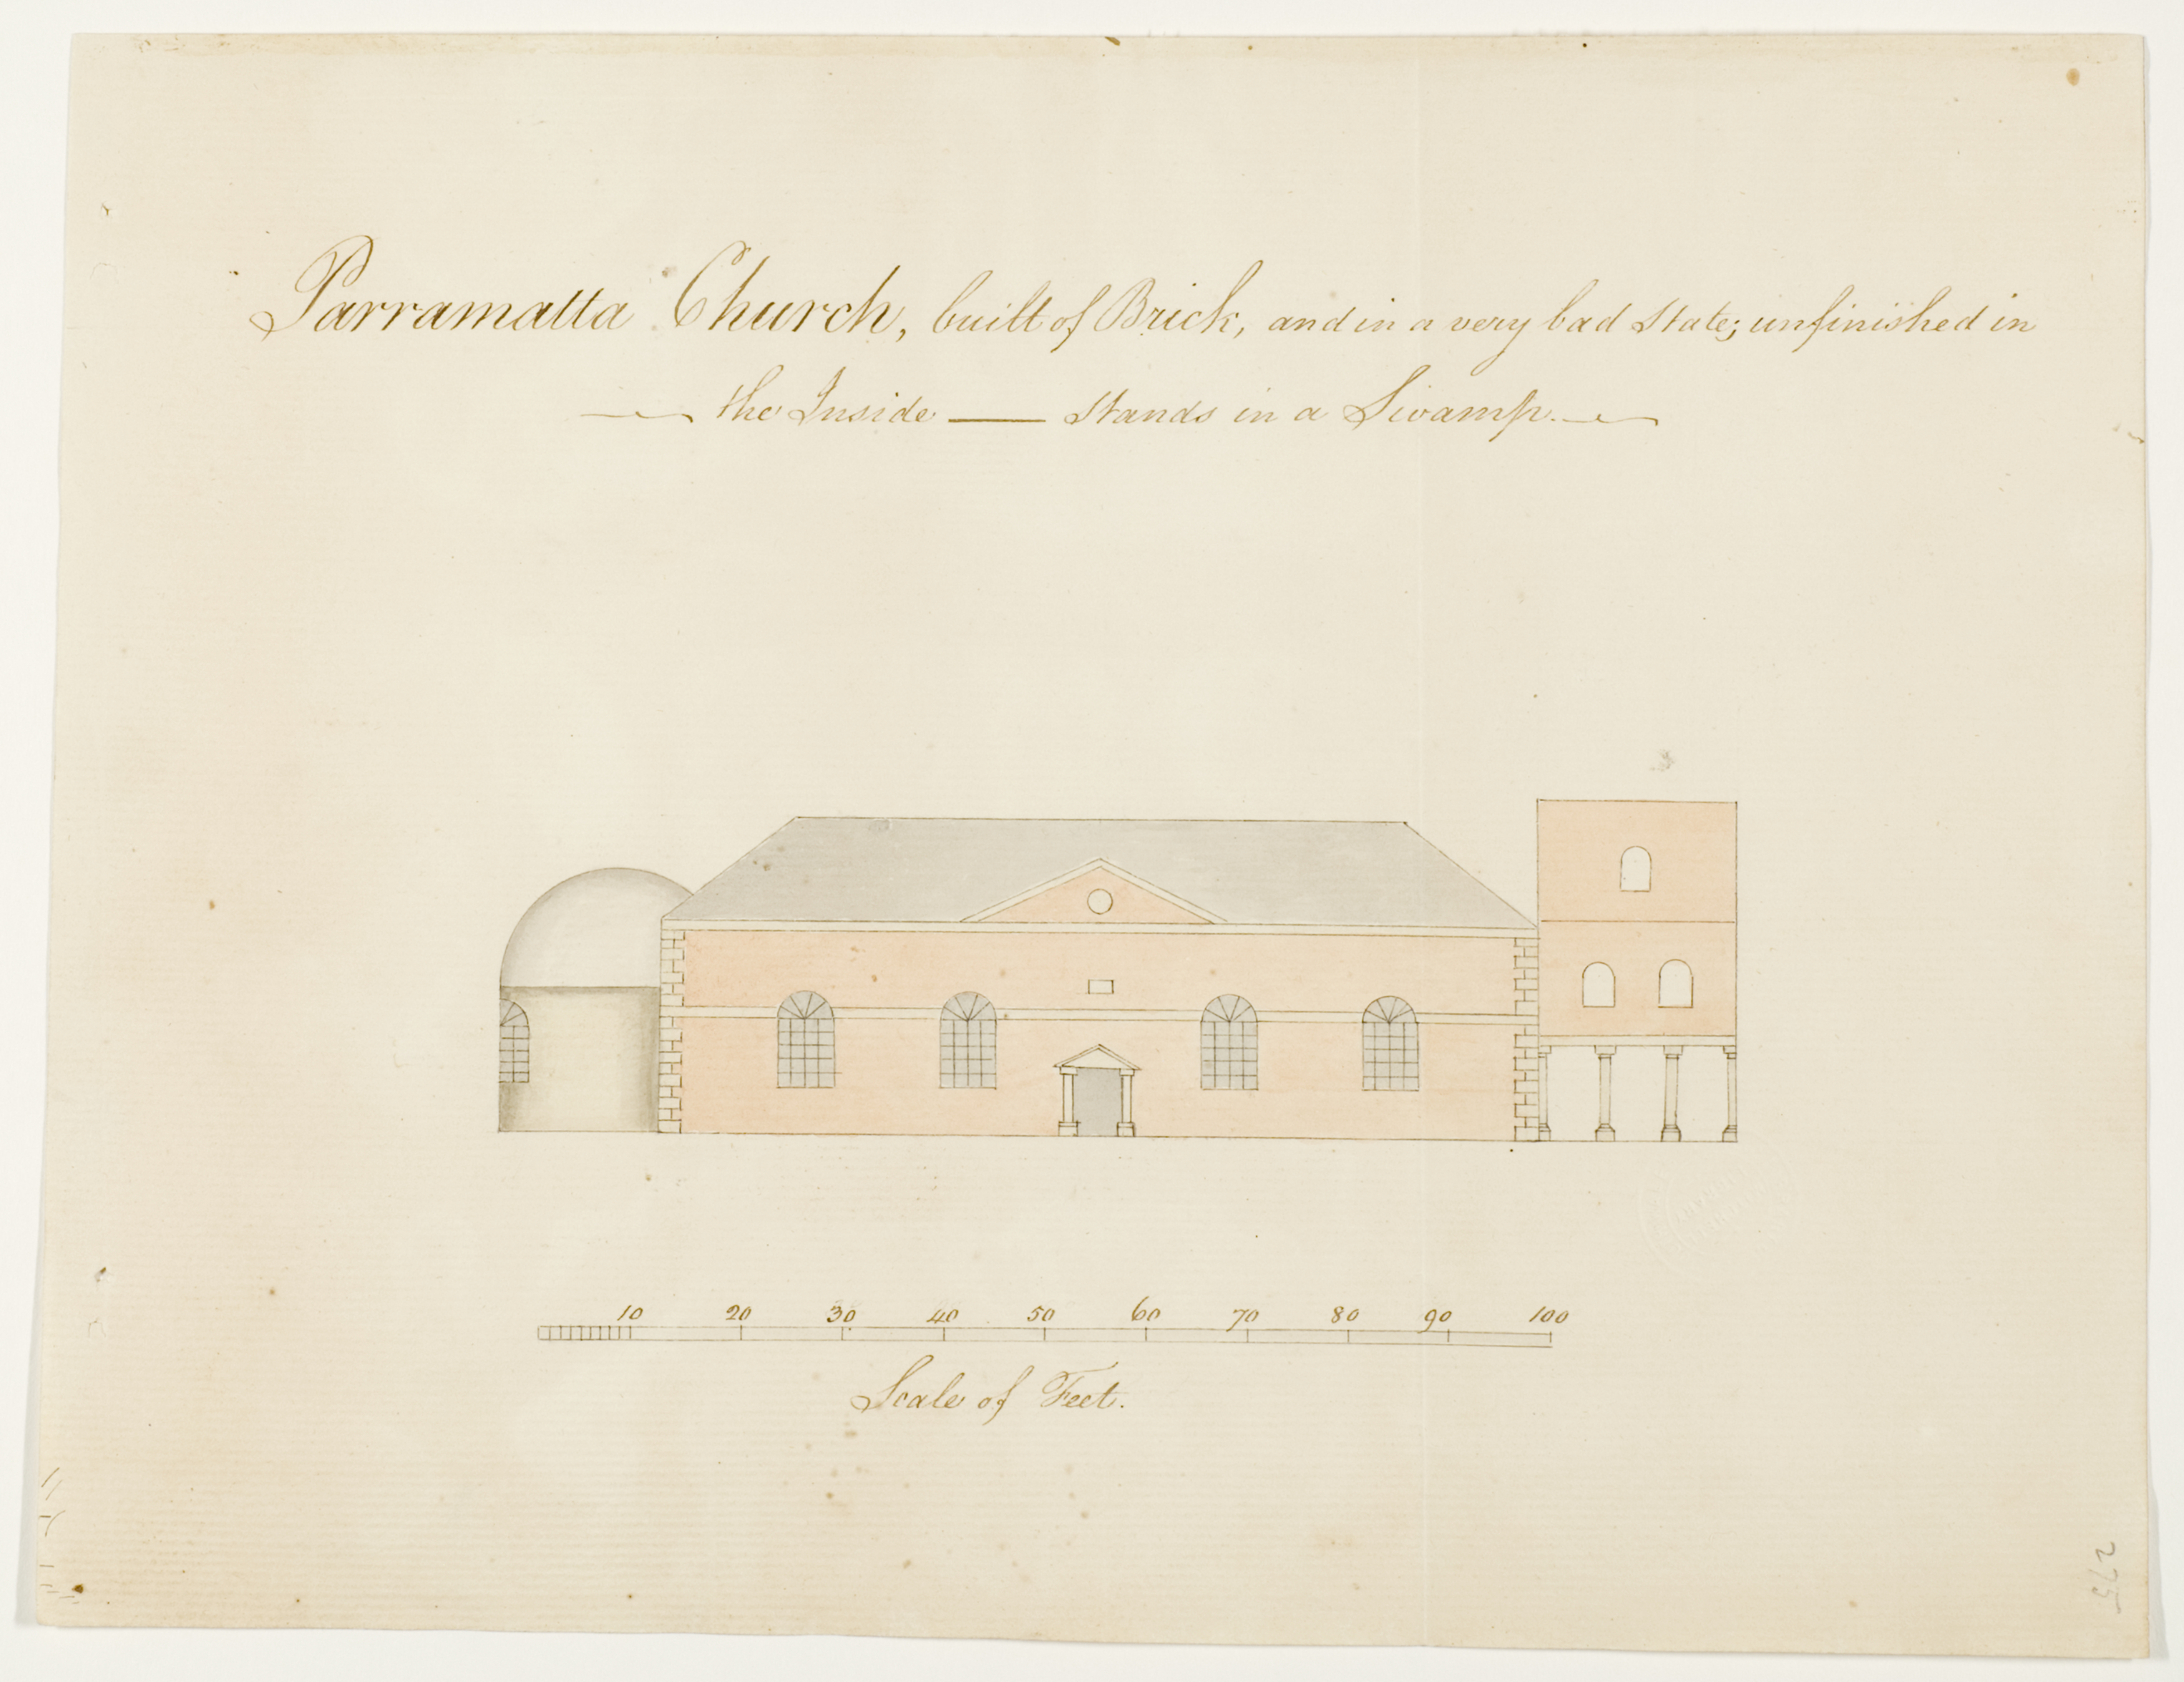 Parramatta Church, built of Brick, and in a very bad State; unfinished in
the Inside — Stands in a Swamp.
10 20 30 40 50 60 70 80 90 100
Scale of Feet.
275